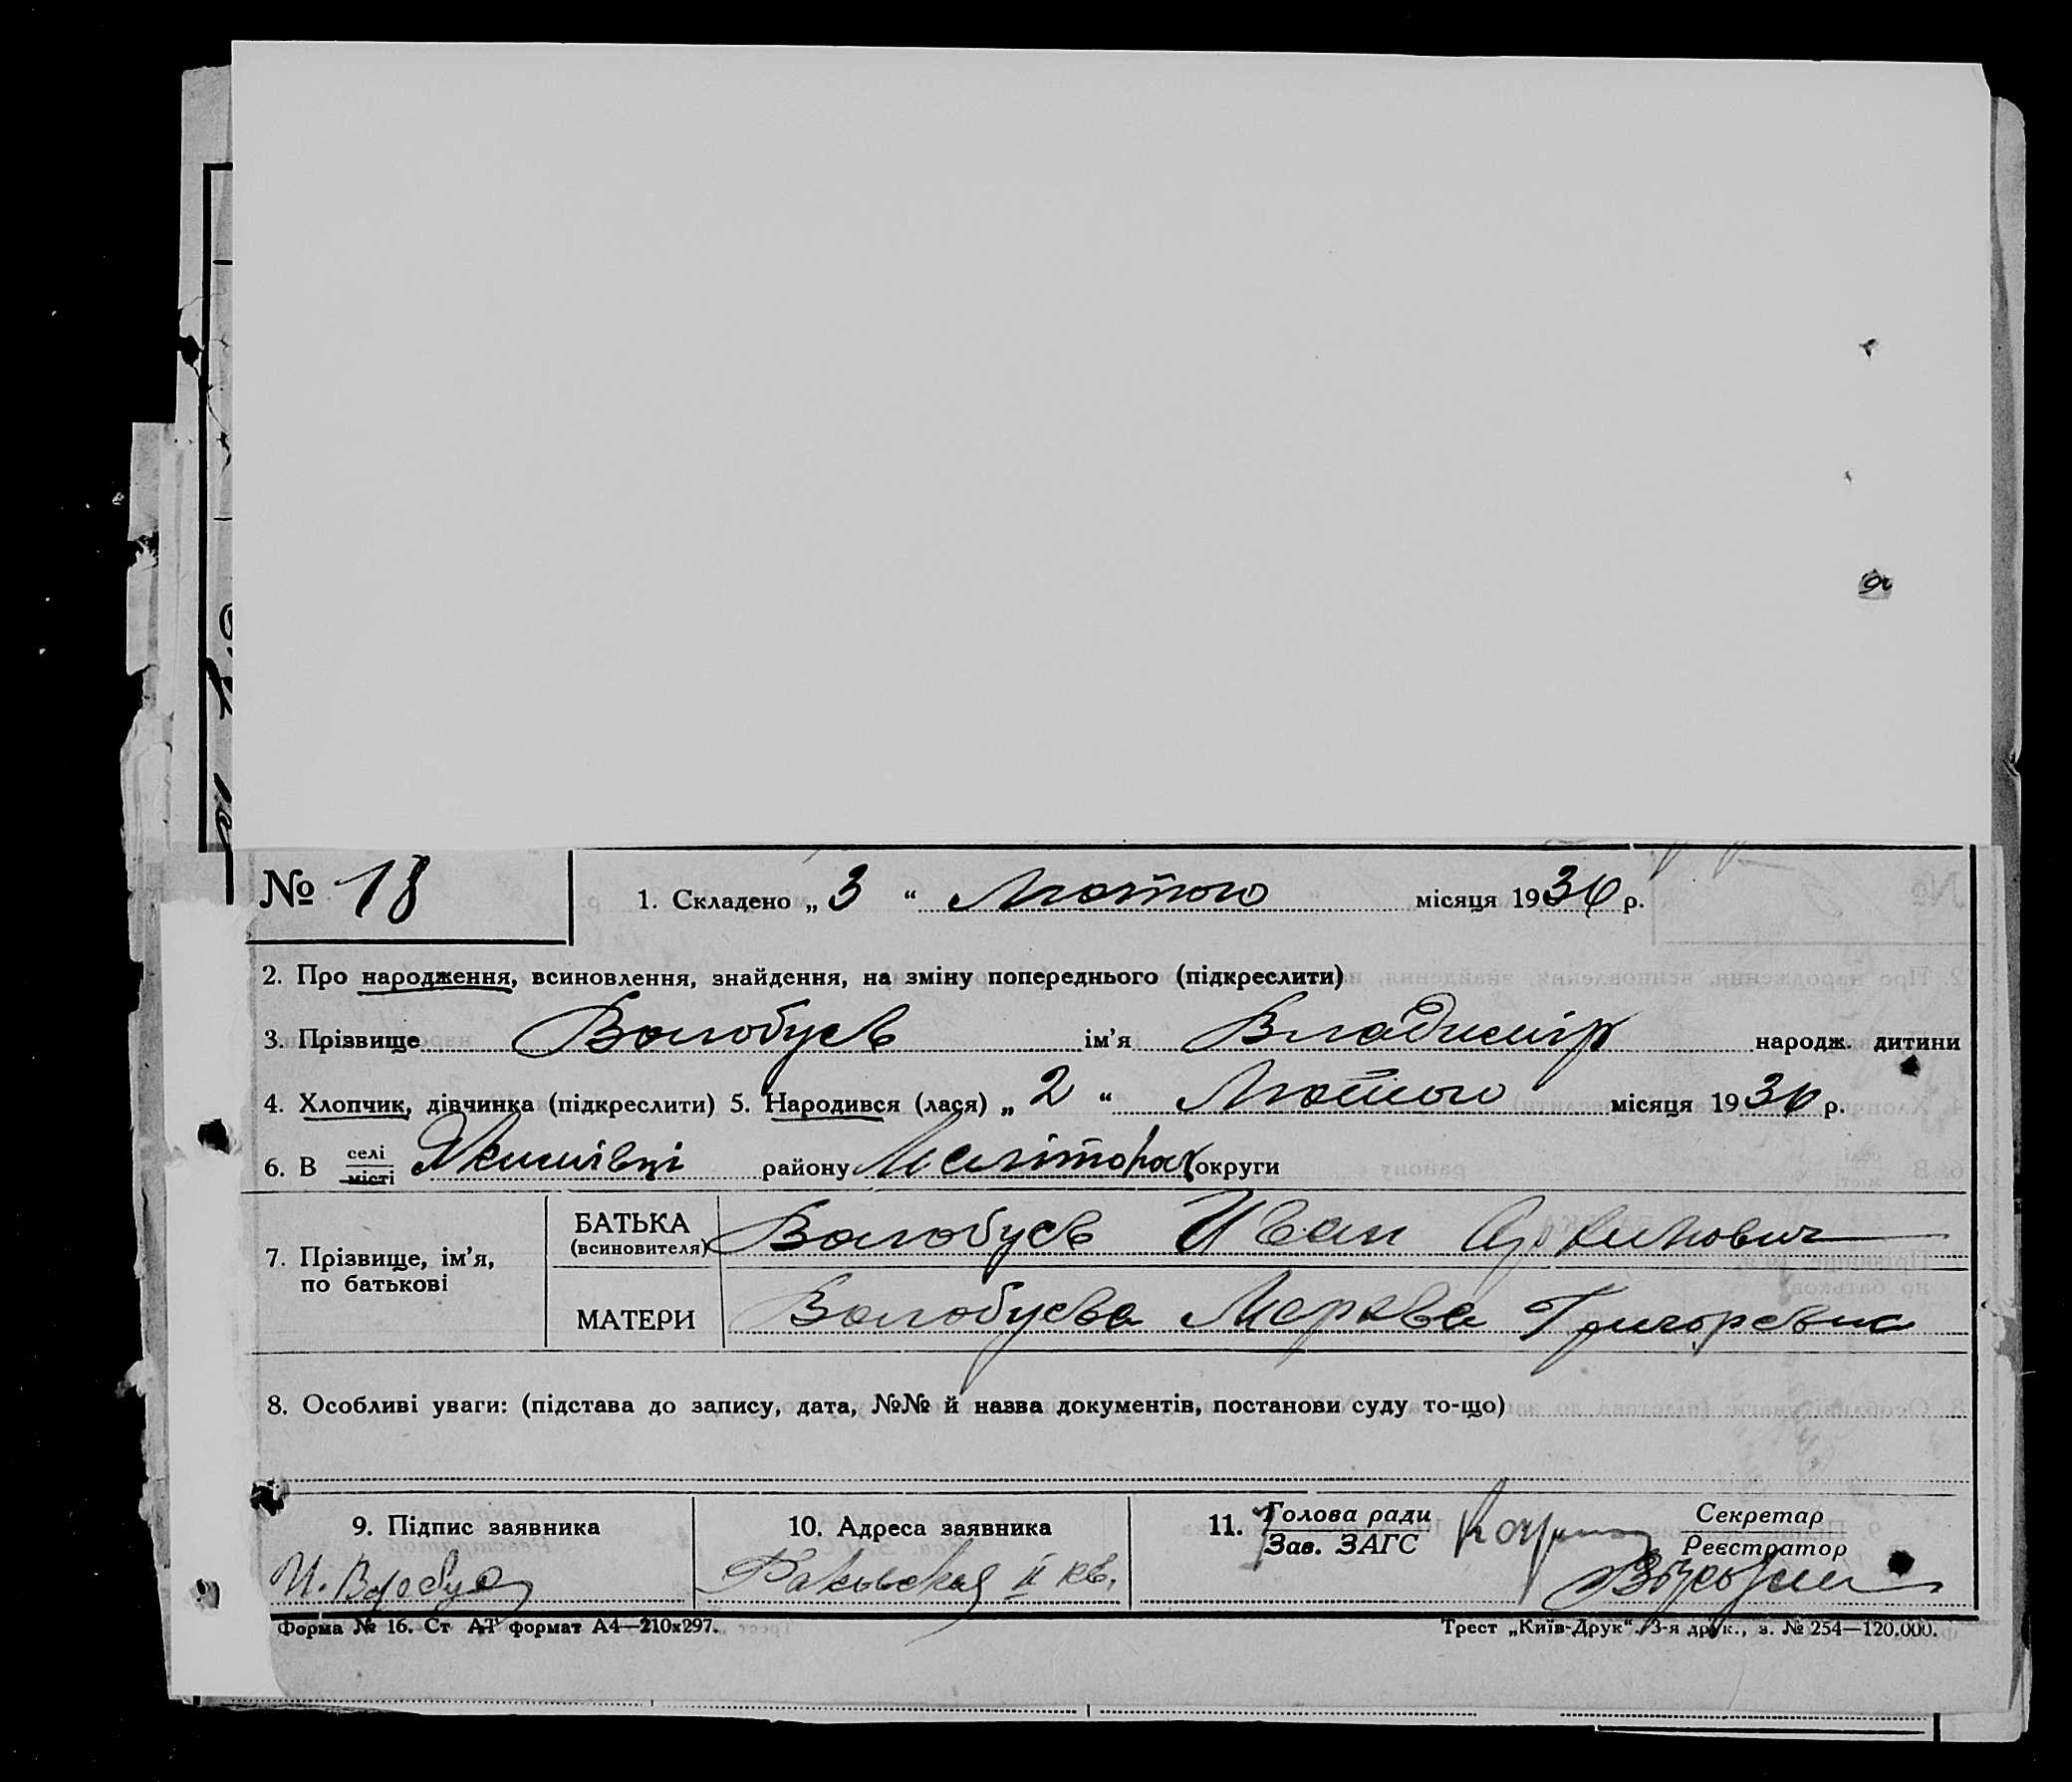 № 18
1. Складено „ 3 “ Лютого місяця 1930 р.
2. Про народження, всиновлення, знайдення, на зміну попереднього (підкреслити)
3. Прізвище Волобуєв ім’я Владимір народж. дитини
4. Хлопчик, дівчинка (підкреслити) 5. Народився (лася) „ 2 “ Лютого місяця 1930 р.
6. В селі місті Якимівці району Мелітопол округи
7. Прізвище, ім’я, по батькові
БАТЬКА (всиновителя) Волобуєв Иван
МАТЕРИ Волобуєва Григоревна
8. Особливі уваги: (підстава до запису, дата, №№ й назва документів, постанови суду то-що)
9. Підпис заявника
10. Адреса заявника
11. Голова ради
Зав. ЗАГС
Секретар
Реєстратор
И. Волобуєв
II кв.
Форма № 16. Ст А4 формат А4—210х297.
Трест „Київ-Друк“. 3-я друк., з. № 254—120.000.